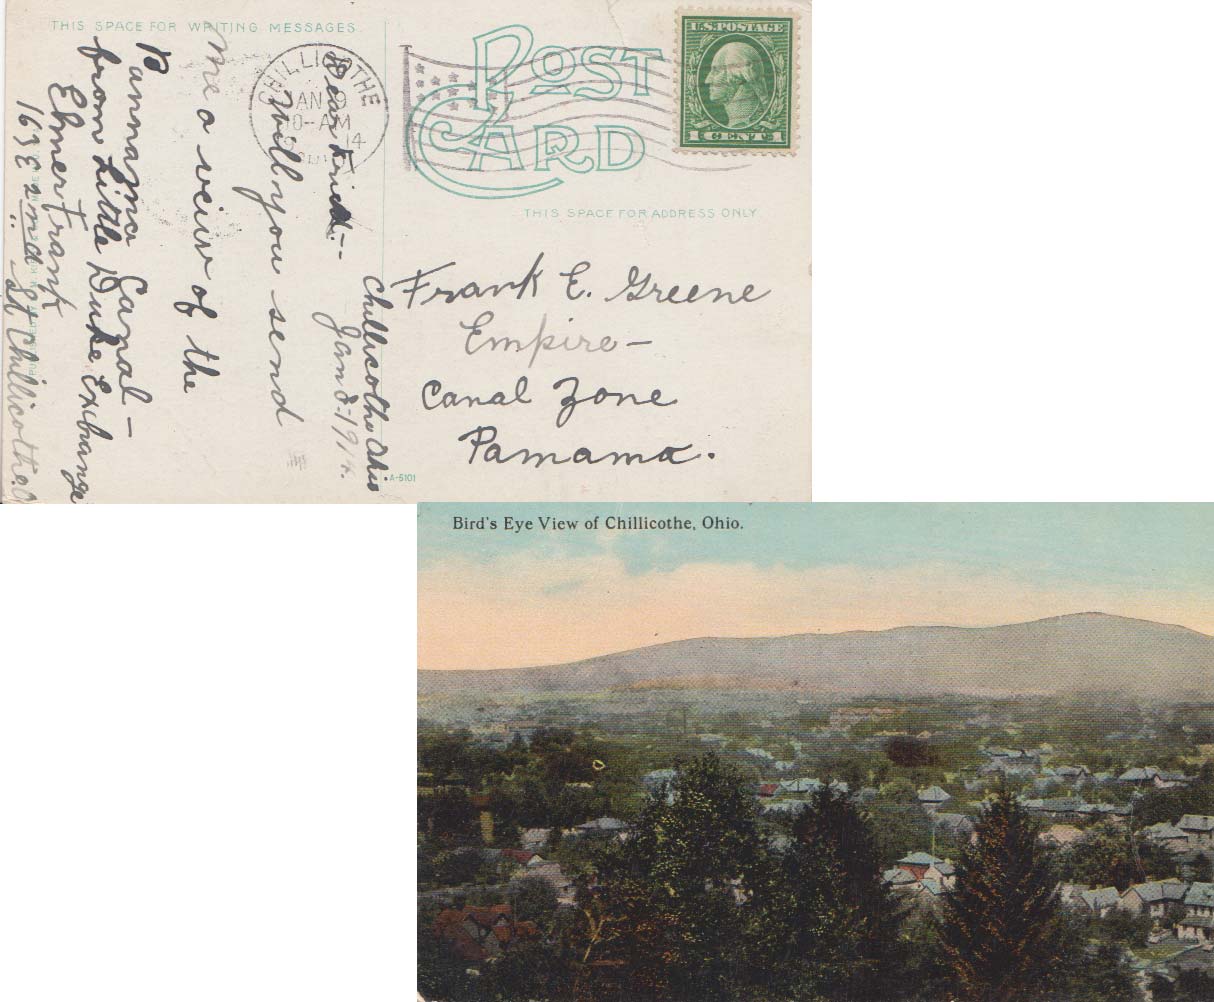 THIS SPACE FOR WRITING MESSAGES
POST
CARD
U.S. POSTAGE
1 CENT 1
CHILLICOTHE
JAN 9
10-AM
14
THIS SPACE FOR ADDRESS ONLY
Frank E. Greene
Empire –
Canal Zone
Panama.
Chillicothe Ohio
Jan 8-1914.
Dear Friend--
Will you send
me a veiw of the
Pannama Canal –
from Little Duke Exchange
Elmer Frank
163 E 2nd St Chillicothe. O
A-5101
Bird's Eye View of Chillicothe, Ohio.